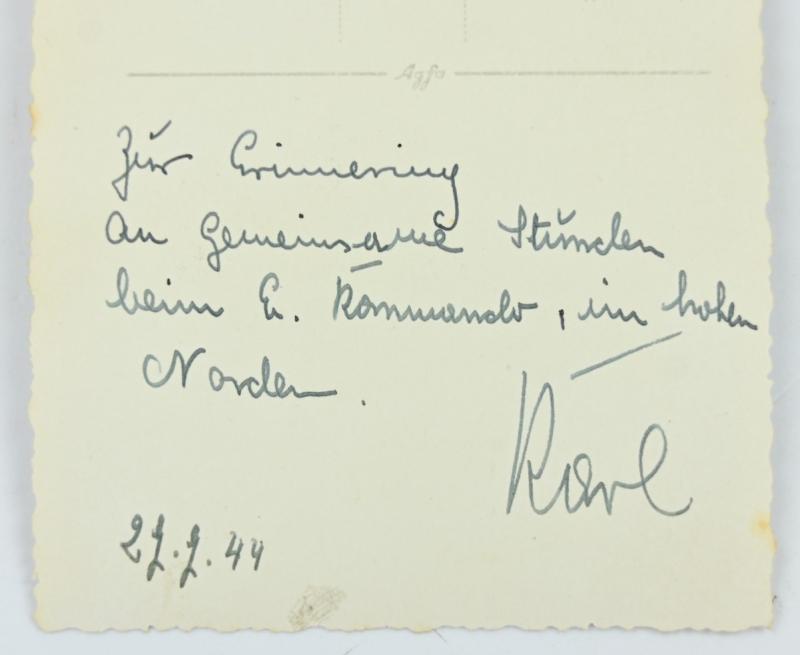 Agfa
Zur Erinnerung
an gemeinsame Stunden
beim E. Kommando, im hohen
Norden.
Karl
27.7.44